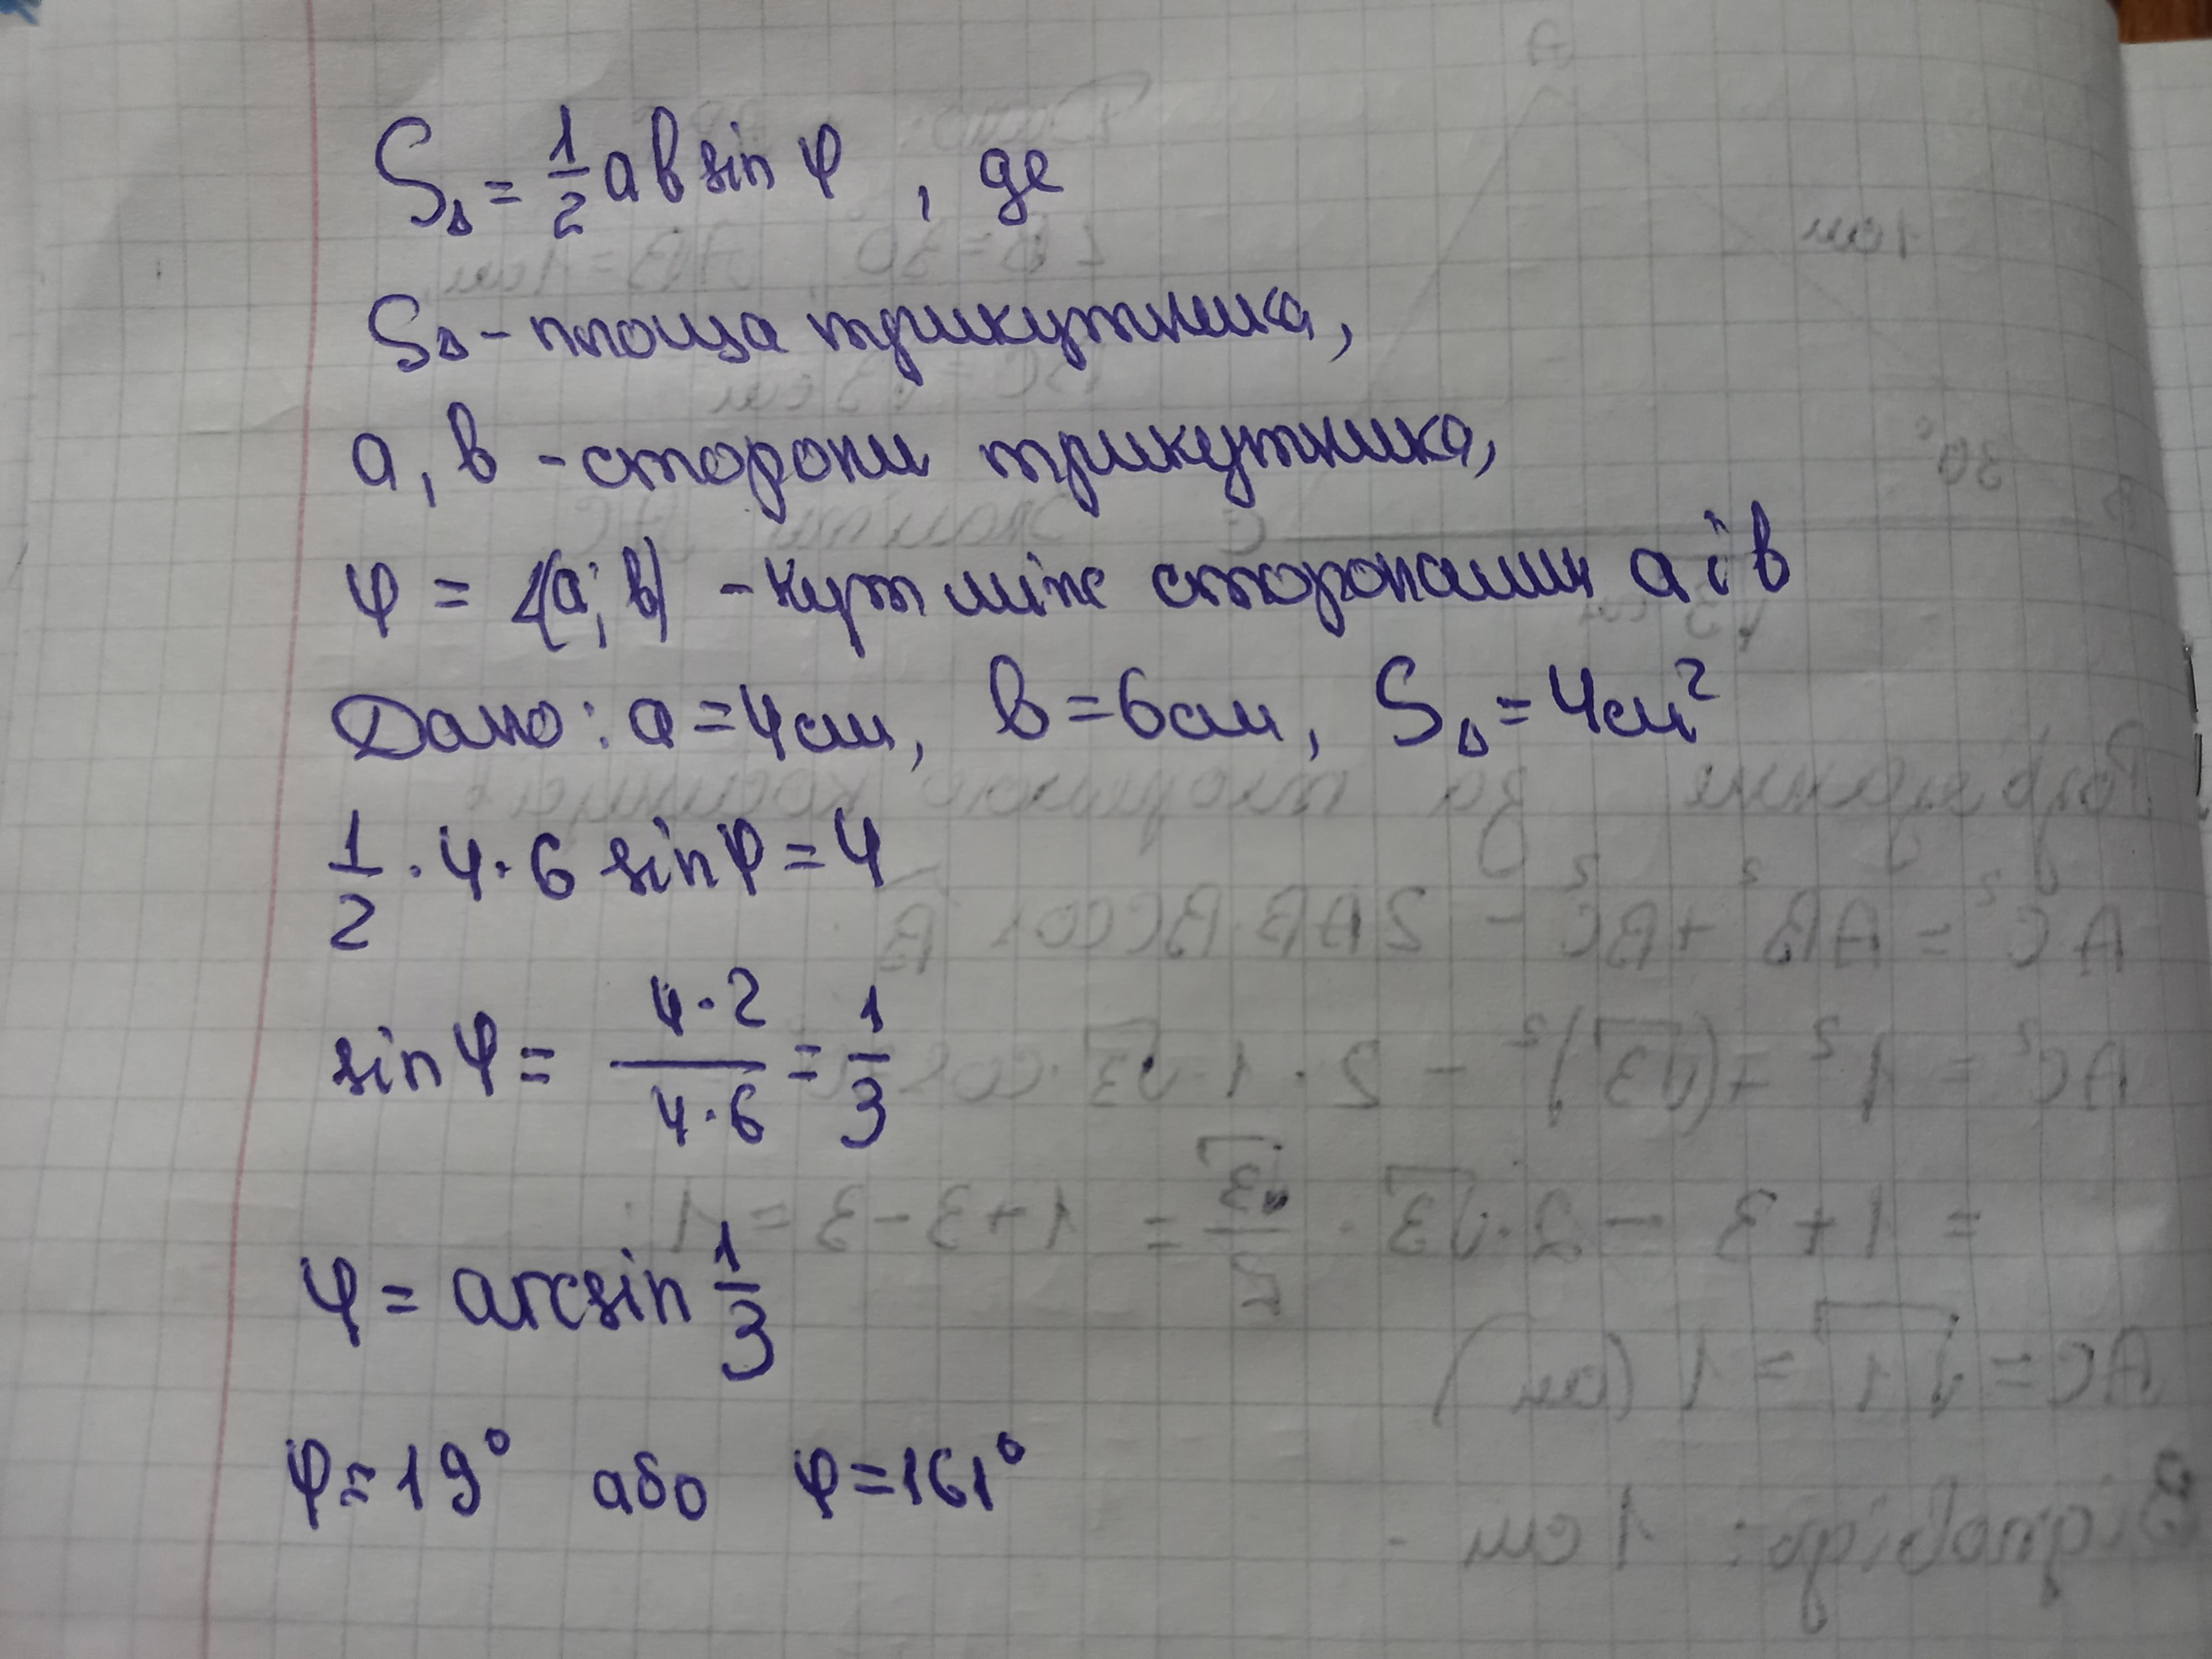 S△ = 1/2 a b sin φ, де
S△ - площа трикутника,
a, b - сторони трикутника,
φ = ∠(a; b) - кут між сторонами a і b
Дано: a = 4 см, b = 6 см, S△ = 4 см²
1/2 · 4 · 6 sin φ = 4
sin φ = (4·2)/(4·6) = 1/3
φ = arcsin 1/3
φ = 19° або φ = 161°